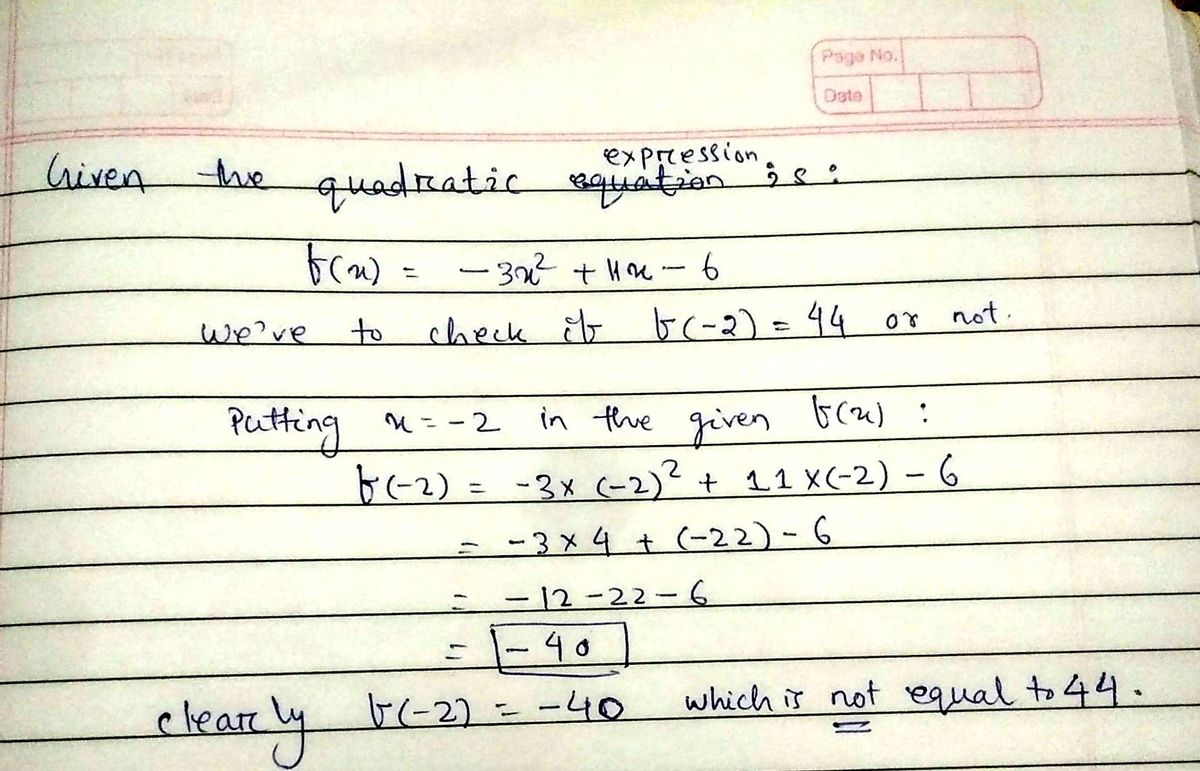 Page No.
Date
Given the quadratic equation expression is :
f(x) = -3x² + 11x - 6
we've to check if f(-2) = 44 or not.
Putting x = -2 in the given f(x) :
f(-2) = -3 x (-2)² + 11 x (-2) - 6
= -3 x 4 + (-22) - 6
= -12 - 22 - 6
= -40
clearly f(-2) = -40 which is not equal to 44.